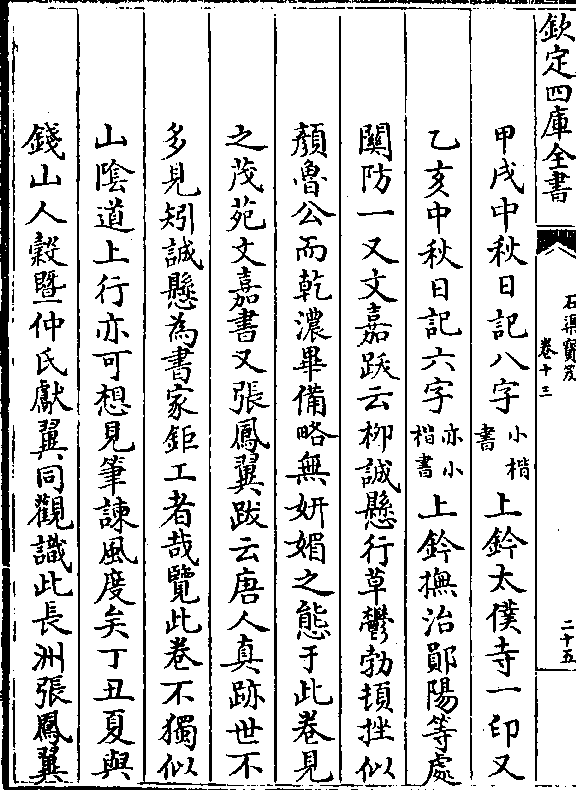 欽定四庫全書
石渠寶笈
卷十三
二十五
甲戌中秋日記八字小楷書上鈐太僕寺一印又
乙亥中秋日記六字亦小楷書上鈐撫治鄖陽等處
關防一又文嘉跋云柳誠懸行草鬱勃頓挫似
顏魯公而乾濃畢備略無妍媚之態于此卷見
之茂苑文嘉書又張鳳翼跋云唐人真跡世不
多見矧誠懸為書家鉅工者哉覽此卷不獨似
山陰道上行亦可想見筆諫風度矣丁丑夏與
錢山人穀暨仲氏獻翼同觀識此長洲張鳳翼